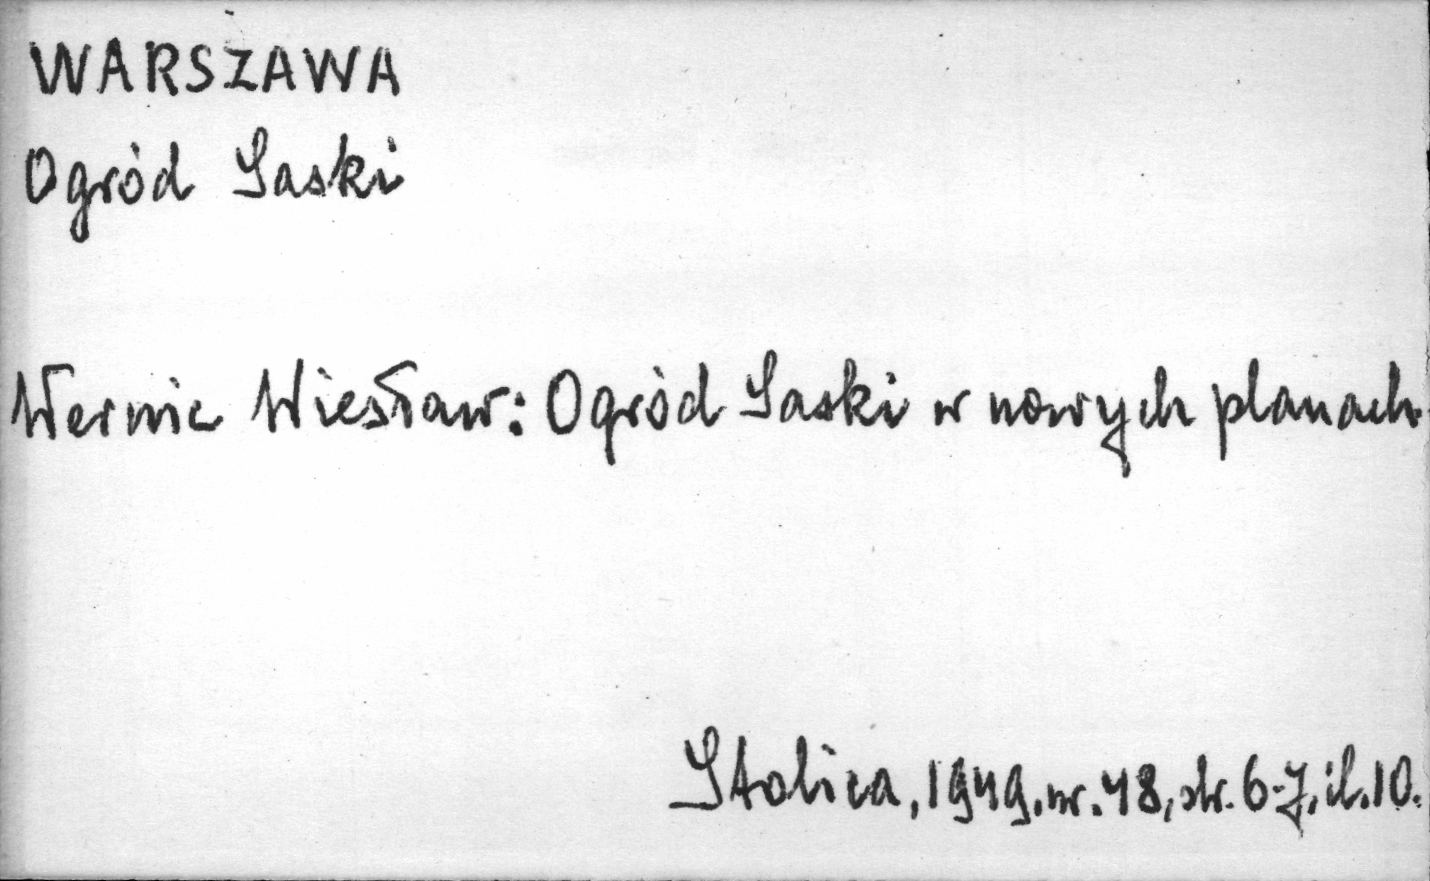 WARSZAWA
Ogród Saski
Wernic Wiesław: Ogród Saski w nowych planach.
Stolica, 1949. nr. 48, str. 6-7, il. 10.